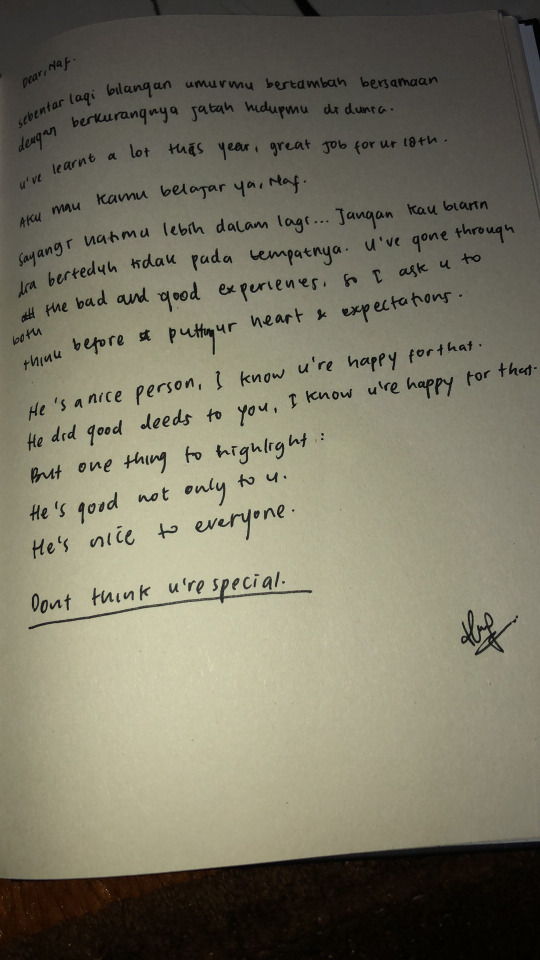 Dear, Naf.
sebentar lagi bilangan umurmu bertambah bersamaan
dengan berkurangnya jatah hidupmu di dunia.
u've learnt a lot this year, great job for ur 18th.
Aku mau kamu belajar ya, Naf.
Sayangi hatimu lebih dalam lagi... Jangan kau biarin
dia berteduh tidak pada tempatnya. U've gone through
both the bad and good experienes, so I ask u to
think before puttingur heart & expectations.
He's a nice person, I know u're happy for that.
He did good deeds to you, I know u're happy for that.
But one thing to highlight :
He's good not only to u.
He's nice to everyone.
Dont think u're special.